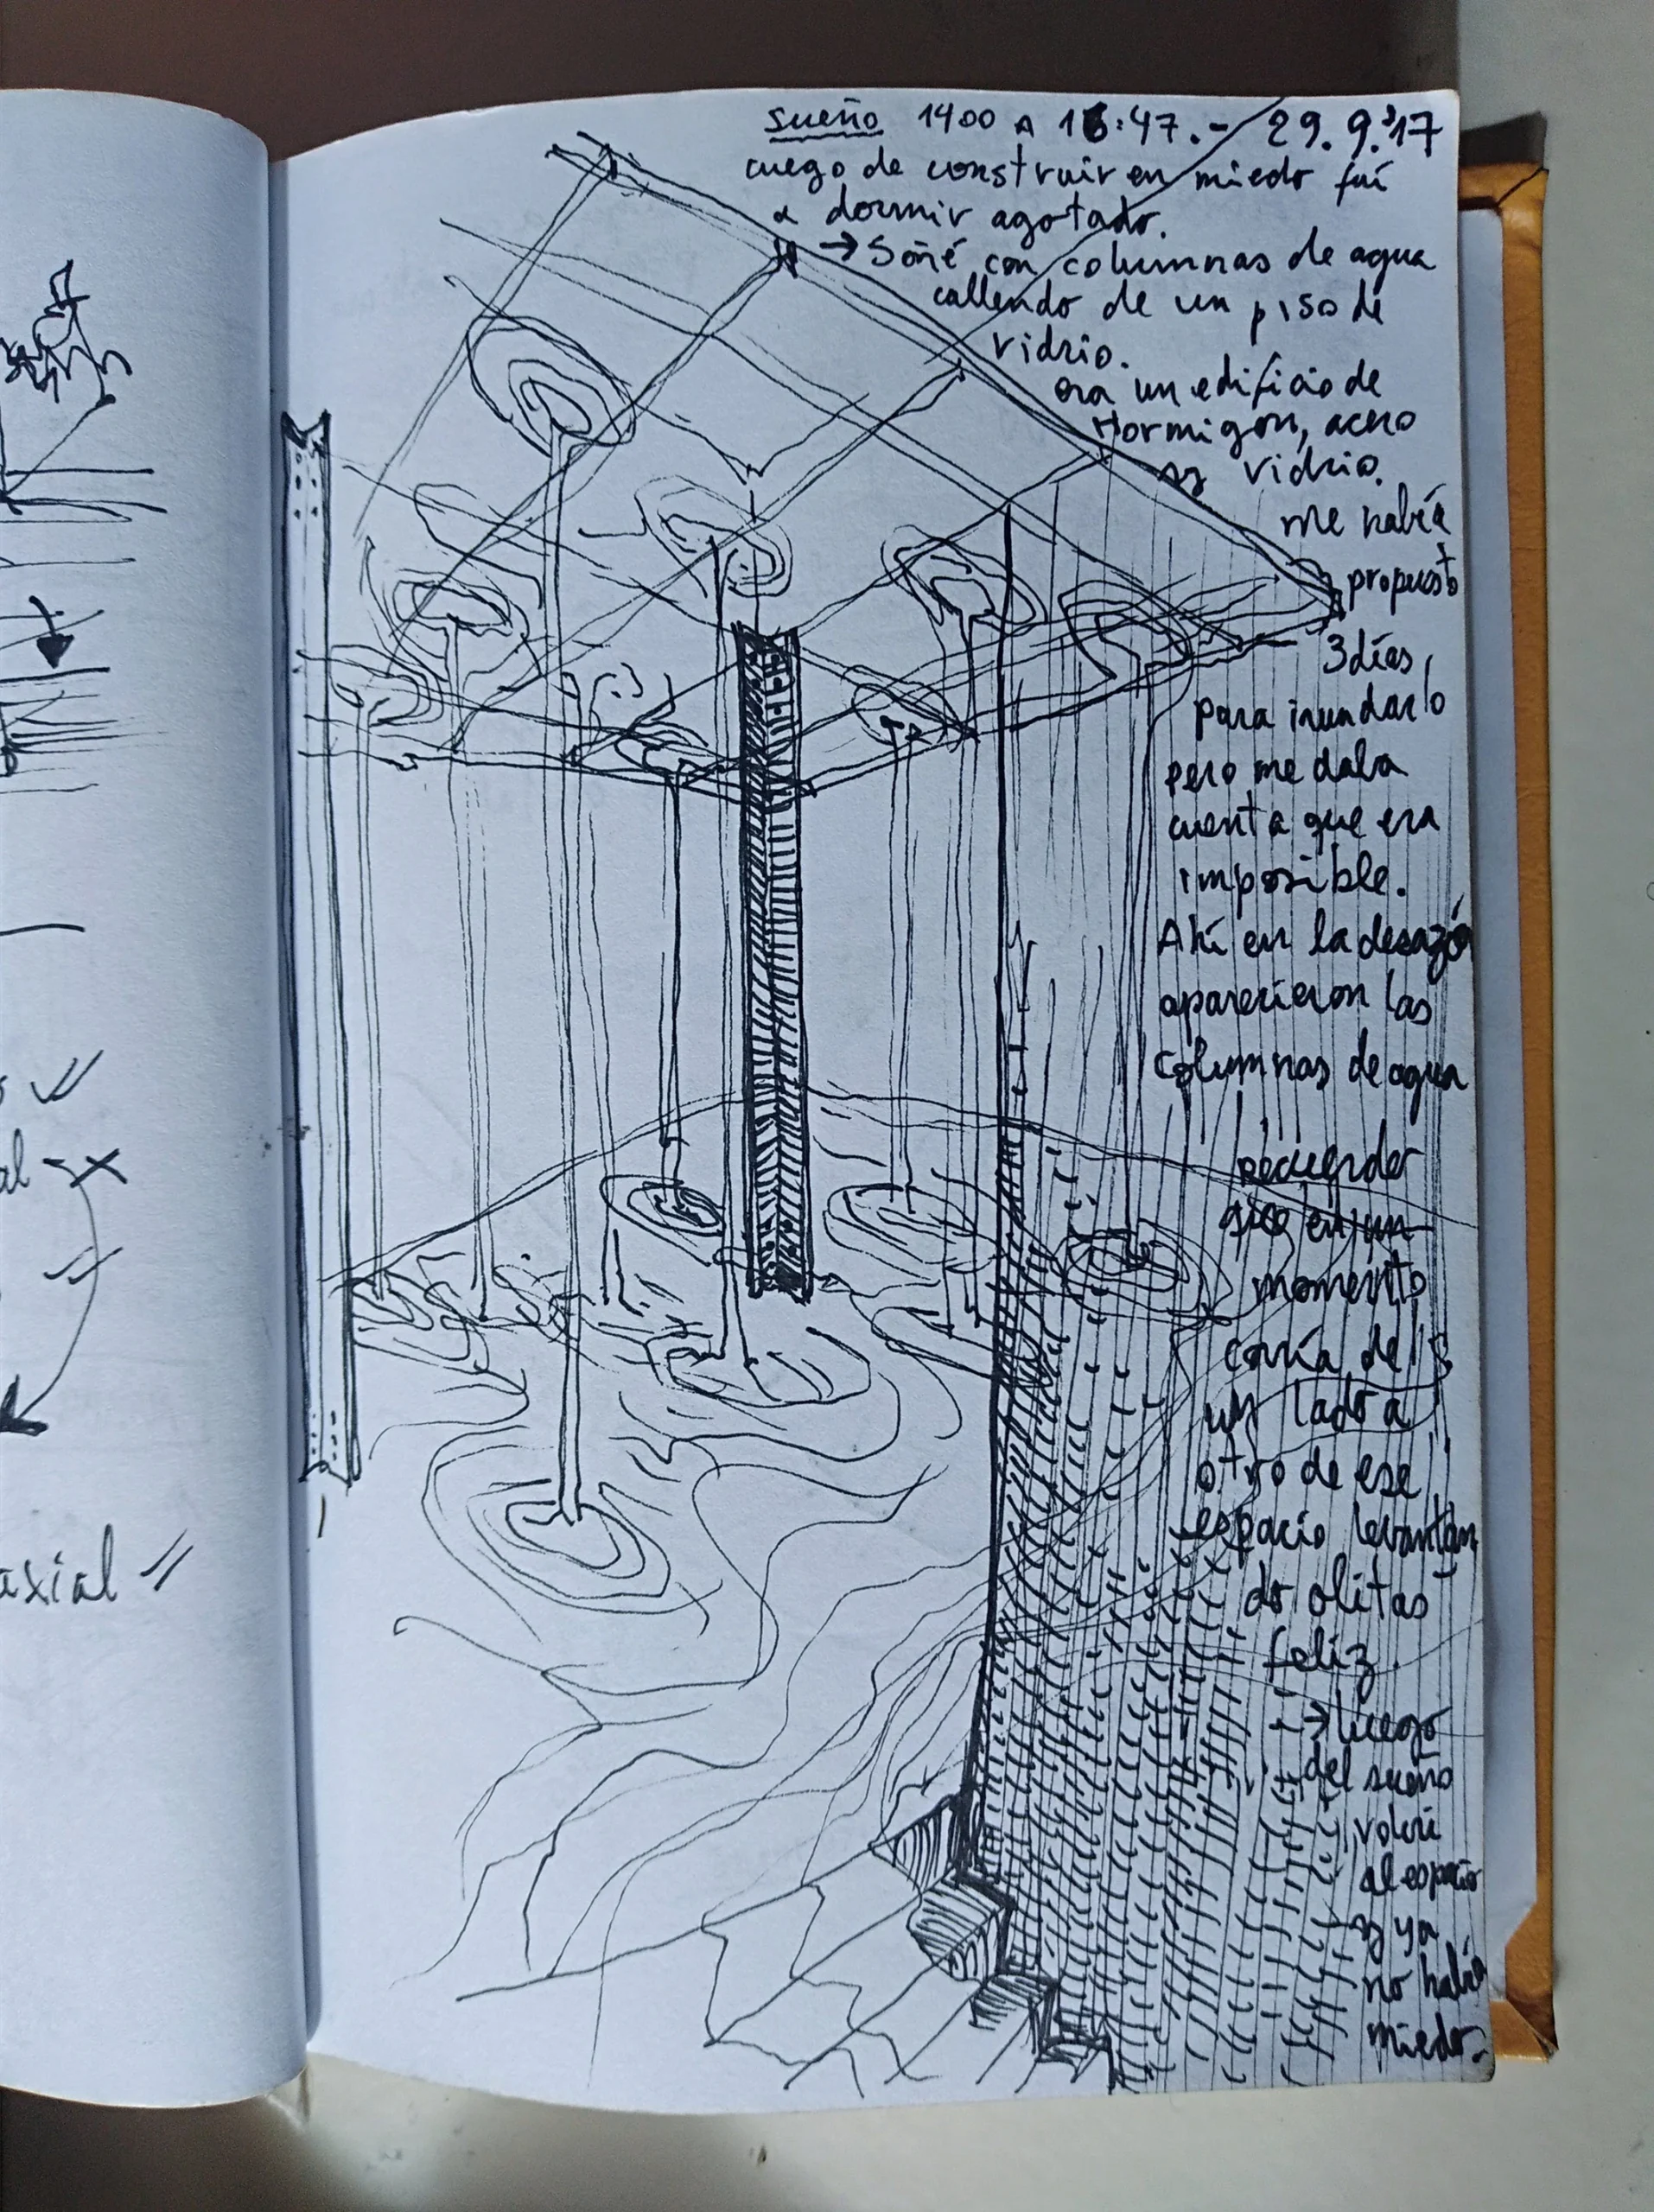 al
axial
sueño 1400 A 16:47.- 29.9.'17
luego de construir en miedo fuí
a dormir agotado.
→ Soñé con columnas de agua
callendo de un piso de
vidrio.
era un edificio de
Hormigón, acero
y vidrio.
Me había
propuesto
3 días,
para inundarlo
pero me daba
cuenta que era
imposible.
Ahí en la desazón
aparecieron las
columnas de agua
recuerdo
que en un
momento
corría de
un lado a
otro de ese
espacio levantan
do olitas
feliz.
→ luego
del sueño
volví
al espacio
y ya
no había
miedo.-